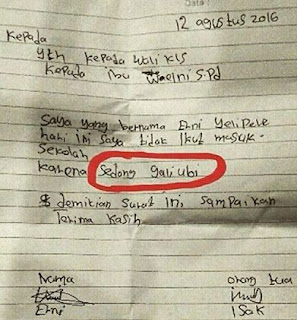 12 agustus 2016
Kepada
yth kepada wali kls
kepada ibu Welni S.Pd
Saya yang bernama Erni Yelipele
hari ini saya tidak ikut masuk
Sekolah
karena sedang gali ubi
demikian surat ini sampaikan
terima kasih
Nama orang tua
Erni Isak